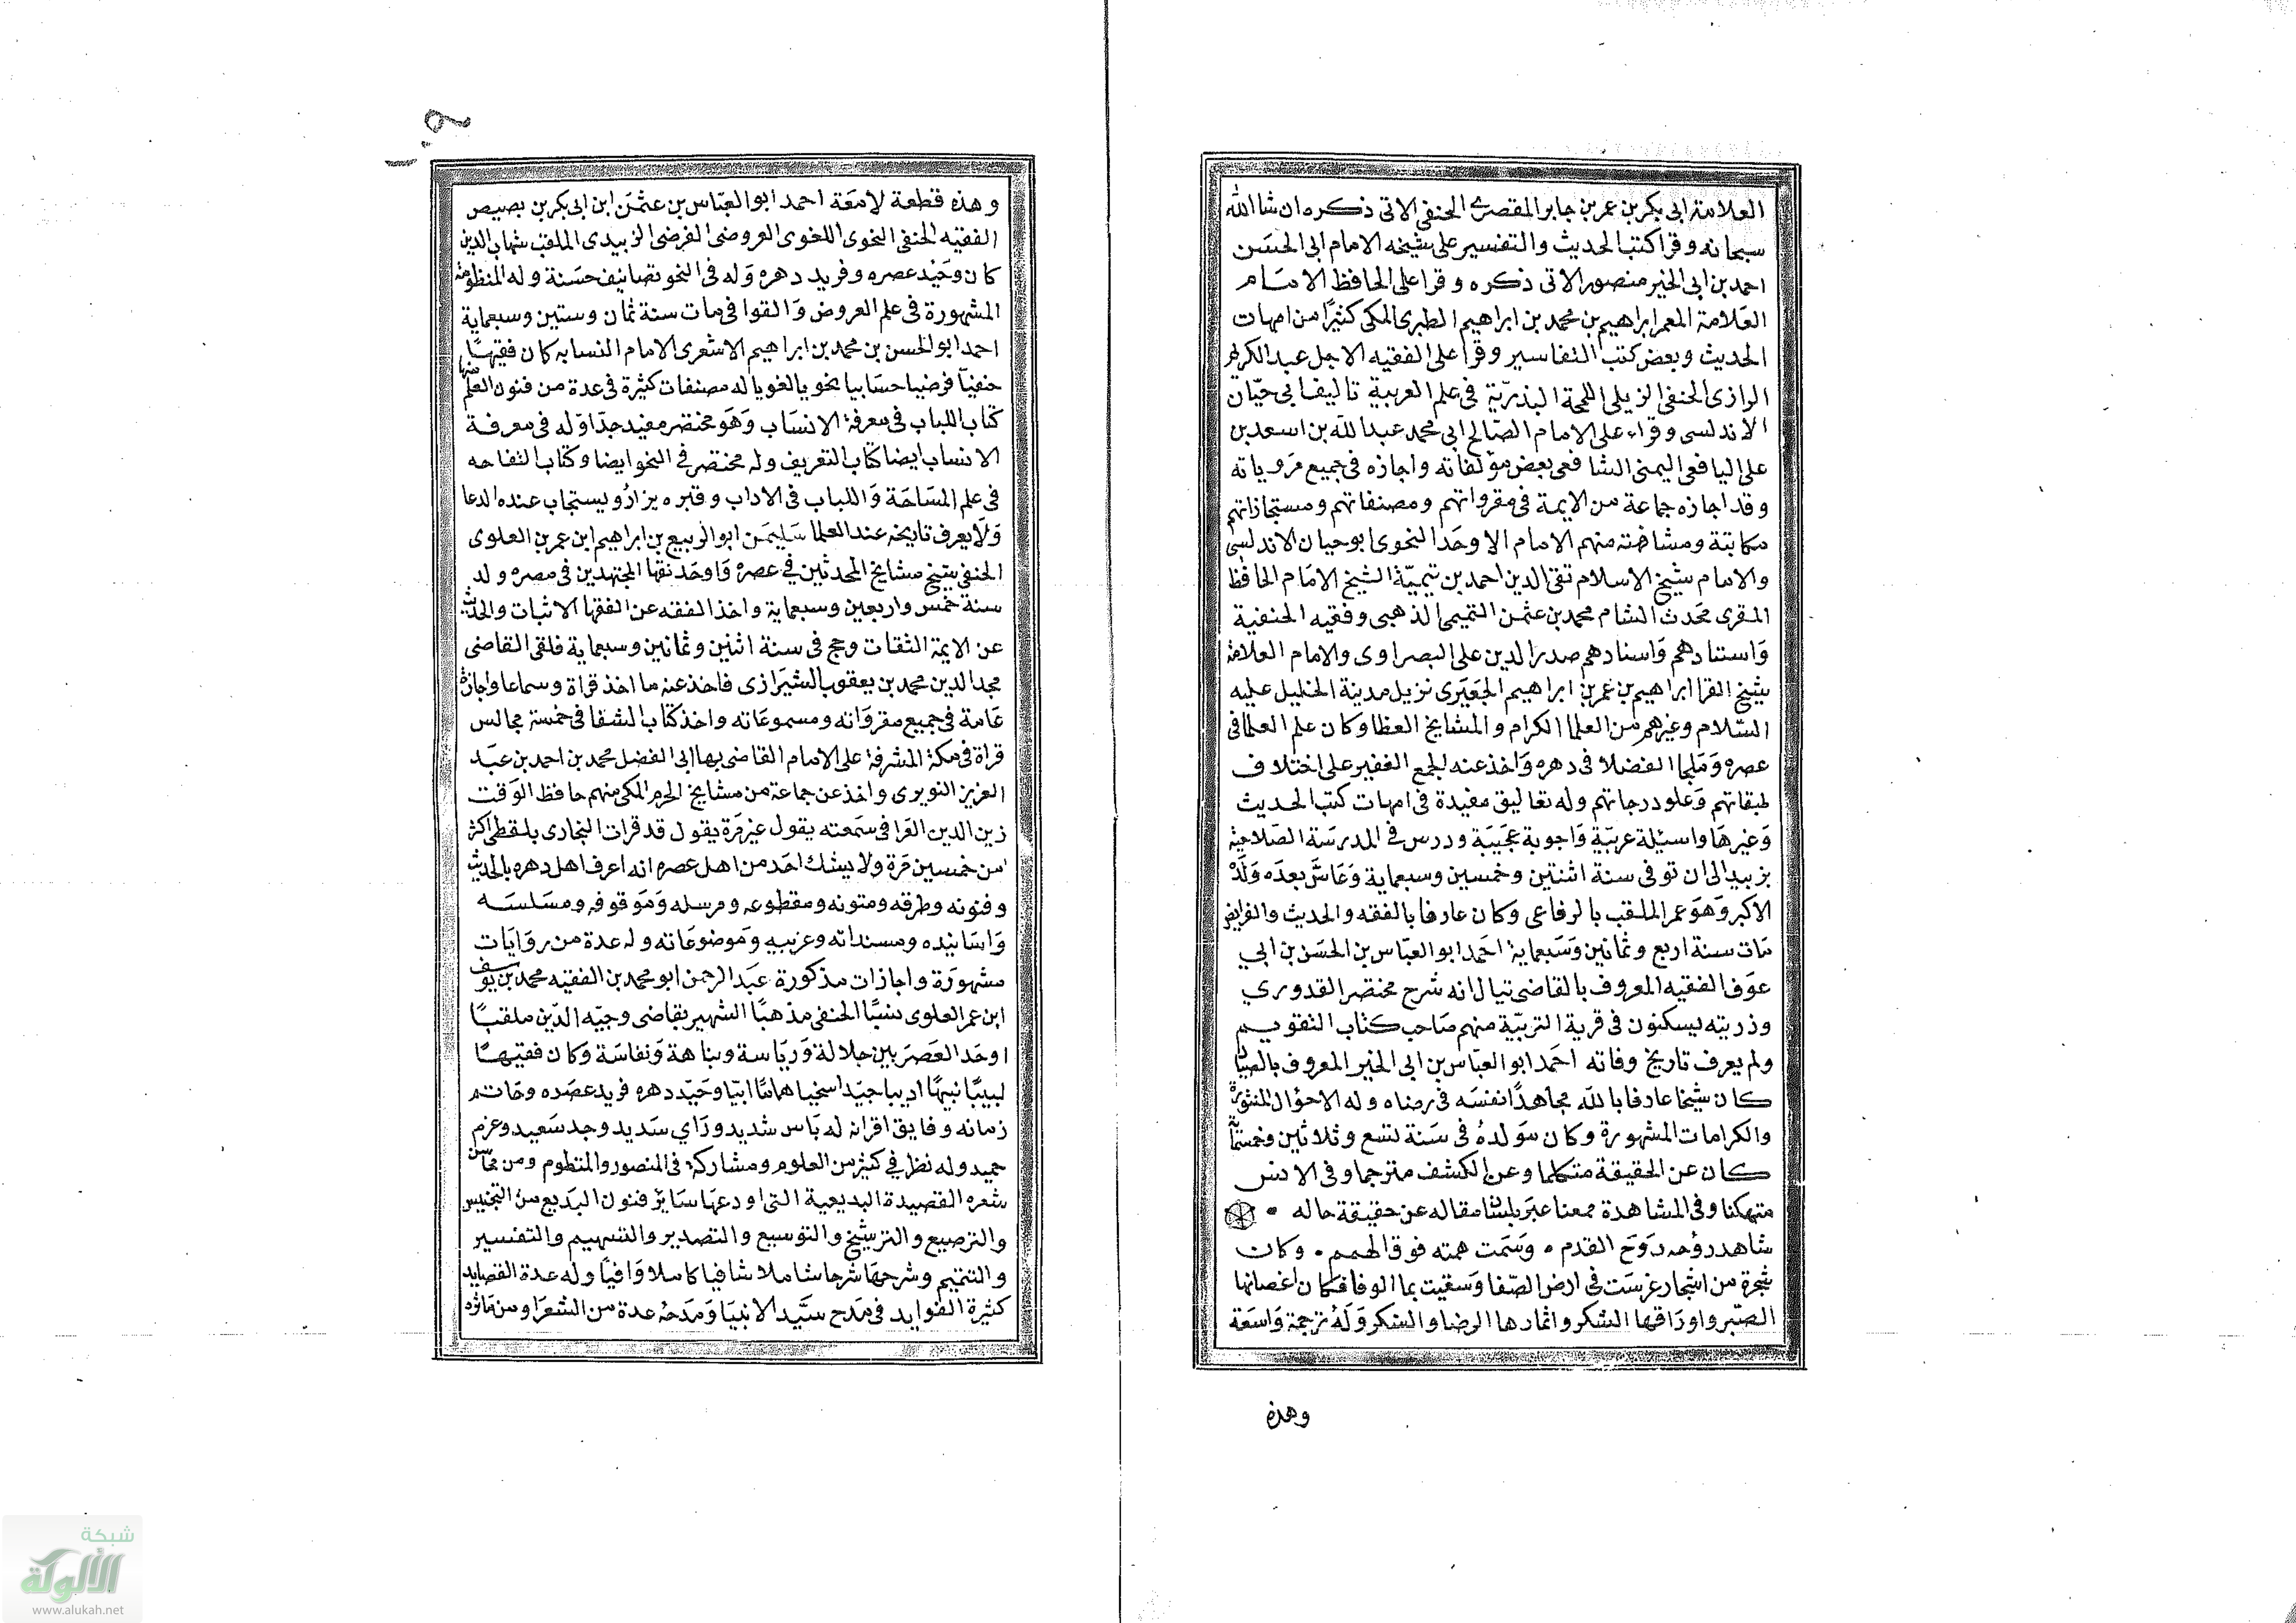 العلامة ابى بكر بن عمر بن جابر المقصرى الحنفى الاتى ذكره ان شا الله
سبحانه وقرا كتب الحديث والتفسير على شيخه الامام ابى الحسن
احمد بن ابى الخير منصور الاتى ذكره وقرا على الحافظ الامام
العلامة المعمر ابراهيم بن محمد بن ابراهيم الطبرى المكى كثيرًا من امهات
الحديث وبعض كتب التفاسير وقرا على الفقيه الاجل عبد الكريم
الرازى الحنفى الزيلى اللمحة البدريّة فى علم العربية تاليف ابى حيّان
الاندلسى وقراء على الامام الصّالح ابى محمد عبد الله بن اسعد بن
على اليافعى اليمنى الشافعى بعض مؤلفاته واجازه فى جميع مروياته
وقد اجازه جماعة من الايمة فى مقرواتهم ومصنفاتهم ومستجازاتهم
مكاتبة ومشافهة منهم الامام الاوحد النحوى ابو حيان الاندلسى
والامام شيخ الاسلام تقى الدين احمد بن تيميّة الشيخ الامام الحافظ
المقرى محدث الشام محمد بن عثمن التميمى الذهبى وفقيه الحنفية
واستنادهم واسنادهم صدر الدين على البصراوى والامام العلامة
شيخ القرا ابراهيم بن عمر بن ابراهيم الجعبرى نزيل مدينة الخليل عليه
السّلام وغيرهم من العلما الكرام والمشايخ العظا وكان علم العلما فى
عصره وملجا الفضلا فى دهره واخذ عنه الجمع الغفير على اختلاف
طبقاتهم وعلو درجاتهم وله تعاليق مفيدة فى امهات كتب الحديث
وغيرها واسيلة عربيّة واجوبة عجيبة ودرس فى المدرسة الصّلاحية
بزبيد الى ان توفى سنة اثنتين وخمسين وسبعماية وعاش بعده ولده
الاكبر وهو عمر الملقب بالرفاعى وكان عارفا بالفقه والحديث والفرايض
مات سنة اربع وثمانين وسبعماية احمد ابو العبّاس بن الحسن بن ابي
عوف الفقيه المعروف بالقاضى تيال انه شرح مختصر القدوري
وذريته يسكنون فى قرية التربيّة منهم صاحب كتاب التقويم
ولم يعرف تاريخ وفاته احمد ابو العبّاس بن ابى الخير المعروف بالصياد
كان شيخا عارفا بالله مجاهدًا نفسه فى رضاه وله الاحوال المنثورة
والكرامات المشهورة وكان مولده فى سنة تسع وثلاثين وخمسمآ
كان عن الحقيقة متكلما وعن الكشف مترجما وفى الانس
متمكنا وفى المشاهدة ممعنا عبر بلسان مقاله عن حقيقة حاله •
شاهد روحه روح القدم • وسمت همته فوق الهمم • وكان
شجرة من اشجار غرست فى ارض الصّفا وسقيت بما الوفا فكان اغصانها
الصّبر واوراقها الشكر واثمارها الرضا والشكر وله ترجمة واسعة
وهذه
وهذه قطعة لامعة احمد ابو العبّاس بن عثمن ابن ابى بكر بن بصيص
الفقيه الحنفى النحوى اللغوى العروضى الفرضى الزبيدى الملقب شهاب الدين
كان وحيد عصره وفريد دهره وله فى النحو تصانيف حسنة وله المنظومة
المشهورة فى علم العروض والقوا فى مات سنة ثمان وستين وسبعماية
احمد ابو الحسن بن محمد بن ابراهيم الاشعرى الامام النسابه كان فقيهًا
حنفيا فرضيا حسابيا نحويا لغويا له مصنفات كثيرة فى عدة من فنون العلم منها
كتاب اللباب فى معرفة الانساب وهو مختصر مفيد جدّا وله فى معرفة
الانساب ايضا كتاب التعريف وله مختصر فى النحو ايضا وكتاب التفاحه
فى علم المساحة واللباب فى الاداب وقبره يزار ويستجاب عنده الدعا
ولا يعرف تاريخه عند العلما سليمن ابو الربيع بن ابراهيم ابن عمر بن العلوى
الحنفى شيخ مشايخ المحدثين في عصره واوحد نقها المجتهدين فى مصره ولد
سنة خمس واربعين وسبعماية واخذ الفقه عن الفقها الاثبات والحديث
عن الايمة الثقات وحج فى سنة اثنين وثمانين وسبعماية فلقى القاضى
مجد الدين محمد بن يعقوب الشيرازى فاخذ عنه ما اخذ قراة وسماعا واجازة
عامة فى جميع مقرواته ومسموعاته واخذ كتاب الشفا فى خمسة مجالس
قراة فى مكة المشرفة على الامام القاضى بها ابى الفضل محمد بن احمد بن عبد
العزيز النويرى واخذ عن جماعة من مشايخ الحرم المكى منهم حافظ الوقت
زين الدين العرا فى سمعته يقول غير مرة يقول قد قرات البخارى بلفظى اكثر
من خمسين مرة ولا يشك احد من اهل عصره انه اعرف اهل دهره بالحديث
وفنونه وطرقه ومتونه ومقطوعه ومرسله وموقوفه ومسلسه
واسانيده ومسنداته وغريبه وموضوعاته وله عدة من روايات
مشهورة واجازات مذكورة عبد الرحمن ابو محمد بن الفقيه محمد بن يوسف
ابن عمر العلوى نسبًا الحنفى مذهبًا الشهير بقاضى وجيه الدّين ملقبًا
اوحد العصر بين جلالة ورياسة ونباهة ونفاسة وكان فقيهًا
لبيبًا نبيهًا اديبا جيّدا سخيا هامّا ابيّا وحيّد دهره فريد عصره وخاتم
زمانه وفايق اقرانه له باس شديد وراي سديد وجد سعيد وعزم
حميد وله نظر في كثير من العلوم ومشاركة فى المنصور والمنظوم ومن محاسن
شعره القصيدة البديعية التى اودعها ساير فنون البديع من التجنيس
والترصيع والترشيخ والتوسيع والتصدير والتسهيم والتفسير
والتتميم وشرحها شرحا شاملا شافيا كاملا وافيًا وله عدة القصايد
كثيرة الفوايد فى مدح سيّد الانبيا ومدحه عدة من الشعرا ومن ماثره
شبكة
الألوكة
www.alukah.net